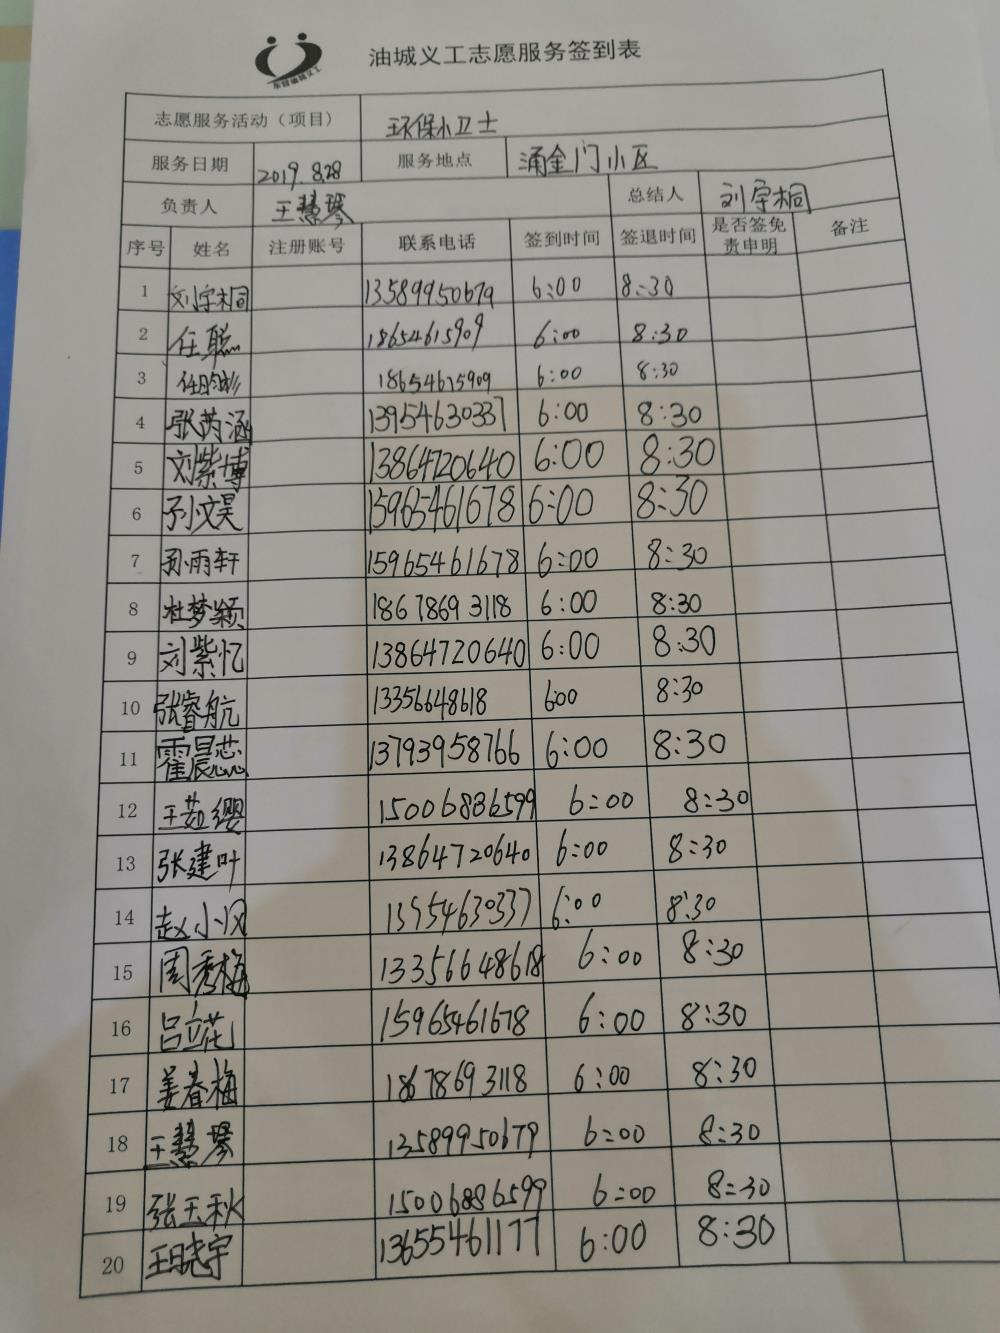 东营油城义工
油城义工志愿服务签到表
志愿服务活动（项目） 环保小卫士
服务日期 2019.8.28 服务地点 涌金门小区
负责人 王慧琴 总结人 刘宇桐
序号 姓名 注册账号 联系电话 签到时间 签退时间 是否签免责申明 备注
1 刘宇桐 13589950679 6:00 8:30
2 任聪 18654615909 6:00 8:30
3 18654615909 6:00 8:30
4 张芮涵 13954630337 6:00 8:30
5 刘紫博 13864720640 6:00 8:30
6 孙文昊 15965461678 6:00 8:30
7 孙雨轩 15965461678 6:00 8:30
8 杜梦颖 18678693118 6:00 8:30
9 刘紫忆 13864720640 6:00 8:30
10 张睿航 13356648618 6:00 8:30
11 霍晨蕊 13793958766 6:00 8:30
12 王茹缨 15006886599 6:00 8:30
13 张建叶 13864720640 6:00 8:30
14 赵小风 13954630337 6:00 8:30
15 周秀梅 13356648618 6:00 8:30
16 吕立花 15965461678 6:00 8:30
17 姜春梅 18678693118 6:00 8:30
18 王慧琴 13589950679 6:00 8:30
19 张玉秋 15006886599 6:00 8:30
20 王晓宇 13655461177 6:00 8:30